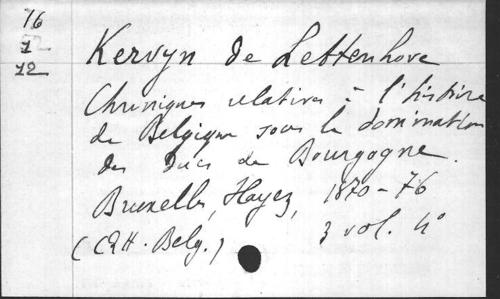 16
1
12
Kervyn de Lettenhove
Chroniques relatives à l'histoire
de Belgique sous la domination
des ducs de Bourgogne.
Bruxelles, Hayez, 1870-76
(CRH. Belg.) 3 vol. 4°